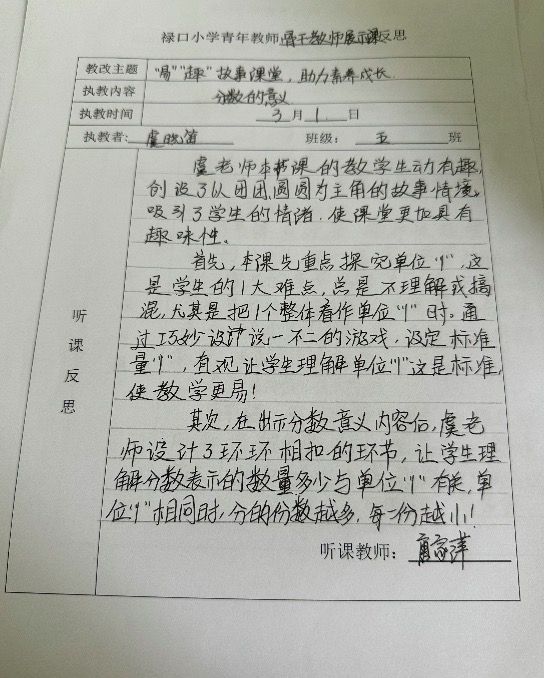 禄口小学青年教师骨干教师展示课反思
教改主题 “易”“趣”故事课堂，助力素养成长
执教内容 分数的意义
执教时间 3月1日
执教者：虞晓笛 班级：五班
听课反思
虞老师本节课的教学生动有趣,
创设了以团团、圆圆为主角的故事情境,
吸引了学生的情绪,使课堂更加具有
趣味性。
首先,本课先重点探究单位“1”,这
是学生的1大难点,总是不理解或搞
混,尤其是把1个整体看作单位“1”时。通
过巧妙设计说一不二的游戏,设定标准
量“1”,直观让学生理解单位“1”这是标准,
使教学更易!
其次,在出示分数意义内容后,虞老
师设计了环环相扣的环节,让学生理
解分数表示的数量多少与单位“1”有关,单
位“1”相同时,分的份数越多,每一份越小!
听课教师：